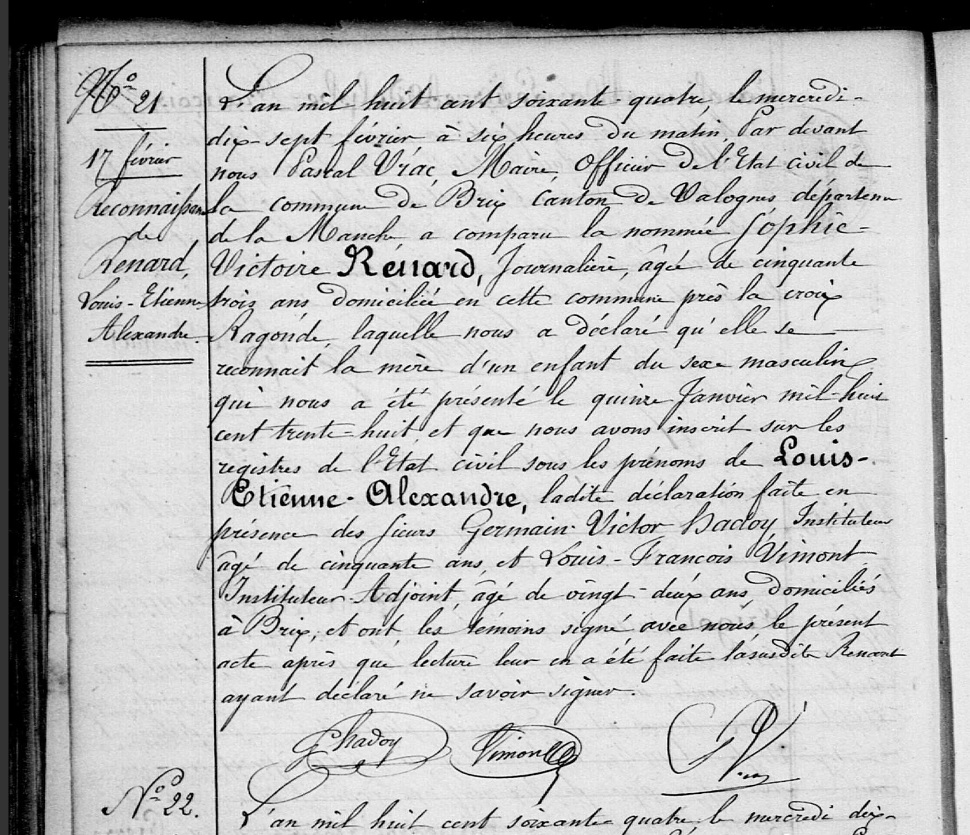 N° 21
17 février
Reconnaissan
de
Renard,
Louis-Etienne
Alexandre.
L'an mil huit cent soixante quatre, le mercredi-
dix-sept février, à six heures du matin, Par devant
nous Pascal Viac, Maire, Officier de l'Etat civil de
la commune de Brix Canton de Valognes, départem
de la Manche a comparu la nommée Sophie-
Victoire Renard, Journalière, âgée de cinquante
trois ans domiciliée en cette commune près la croix
Ragonde, laquelle nous a déclaré qu'elle se
reconnait la mère d'un enfant du sexe masculin
qui nous a été présenté le quinze Janvier mil-huit
cent trente-huit, et que nous avons inscrit sur les
registres de l'Etat civil sous les prénoms de Louis-
Etienne-Alexandre, ladite déclaration faite en
présence des sieurs Germain Victor hadoy Instituteur
âgé de cinquante ans, et Louis-François Vimont
Instituteur Adjoint, âgé de vingt-deux ans domiciliés
à Brix, et ont les témoins signé avec nous le présent
acte après que lecture leur en a été faite la susdite Renard
ayant déclaré ne savoir signer.
Ghadoy Vimont
N° 22.
L'an mil huit cent soixante quatre, le mercredi dix-